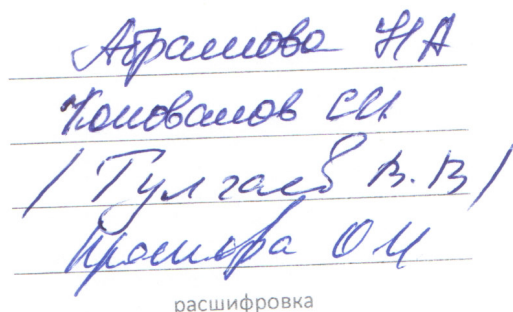 Абрамова НА
Коновалов СИ
/ Тулгаев В.В /
О И
расшифровка